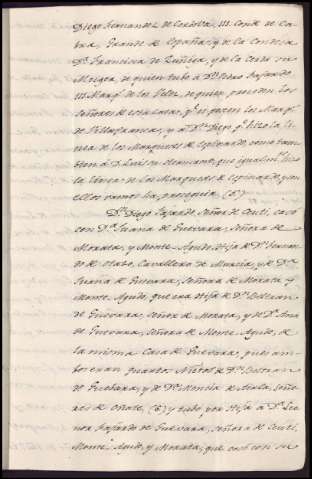 Diego Fernandez de Cordoba, III. Conde de Ca-
bra, Grande de España, y de la Condesa
Dª. Francisca de Zuñiga, y de la Cerda su
Muger, de quien tubo à Dn. Pedro Faxardo,
III Marqs. de los Velez, de quien proceden los
Señores de esta Casa, que poseen los Marqs.
de Villafranca, y à Dn. Diego que hizo la li-
nea de los Marqueses de Espinardo, como tam-
bien à D. Luis su hermano, que igualmte. hizo
la linea de los Marqueses de Espinardo, y en
ellos vamos ha proseguir. (5)
Dn. Diego Faxardo, Señor de Ceuti, casó
con Dª. Juana de Guevara, Señora de
Morata, y Monte Agudo, Hija de Dn. Fernan-
do de Otazo, Cavallero de Murcia, y de Dª.
Juana de Guevara, Señora de Morata y
Monte Agudo, que era Hija de Dn. Beltran
de Guevara, Señor de Morata, y de Dª. Ana
de Guevara, Señora de Monte Agudo, de
la misma Casa de Guevara, pues am-
bos eran quartos Nietos de Dn. Beltran
de Guebara, y de Dª. Mencia de Ayala, Seño-
res de Oñate, (6) y tubo por Hija à Dª. Leo-
nor Faxardo de Guevara, Señora de Ceuti,
Monte Agudo, y Morata, que casó con su